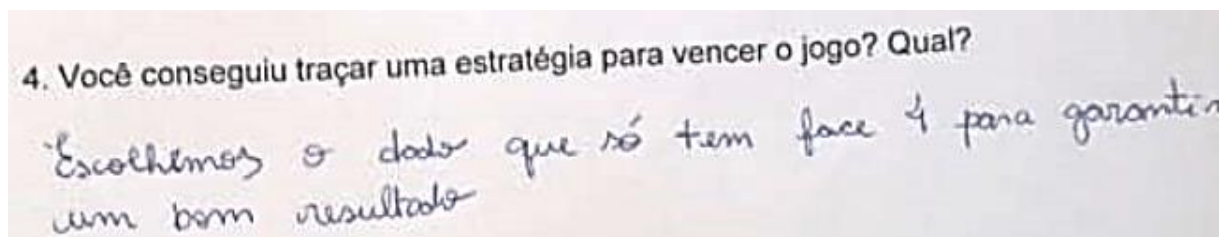 4. Você conseguiu traçar uma estratégia para vencer o jogo? Qual?
Escolhemos o dado que só tem face 4 para garantir
um bom resultado